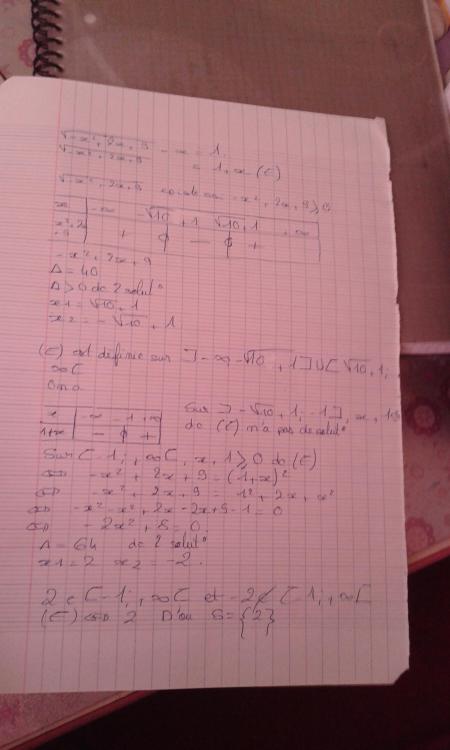 √-x²+2x+9 - x = 1.
√-x²+2x+9 = 1+x (E)
√-x²+2x+9 -x²+2x+9 ≥ 0
x | -∞ -√10+1 √10+1 +∞
x²+2x+9 | + ϕ - ϕ +
-x²+2x+9
Δ = 40
Δ > 0 dc 2 solut°
x1 = √10+1
x2 = -√10+1
(E) est définie sur ]-∞ -√10+1]U[√10+1;
+∞[
On a
x | -∞ -1 +∞
1+x | - ϕ +
Sur ]-√10+1; -1], x+1≤
dc (E) n'a pas de solut°
Sur [-1; +∞[, x+1 ≥ 0 dc (E)
⇔ -x²+2x+9 = (1+x)²
⇔ -x²+2x+9 = 1²+2x+x²
⇔ -x²-x²+2x-2x+9-1=0
⇔ -2x²+8=0.
Δ = 64 dc 2 solut°
x1 = 2 x2 = -2.
2 ∈ [-1; +∞[ et -2 ∉ [-1; +∞[
(E) ⇔ 2 D'où S={2}